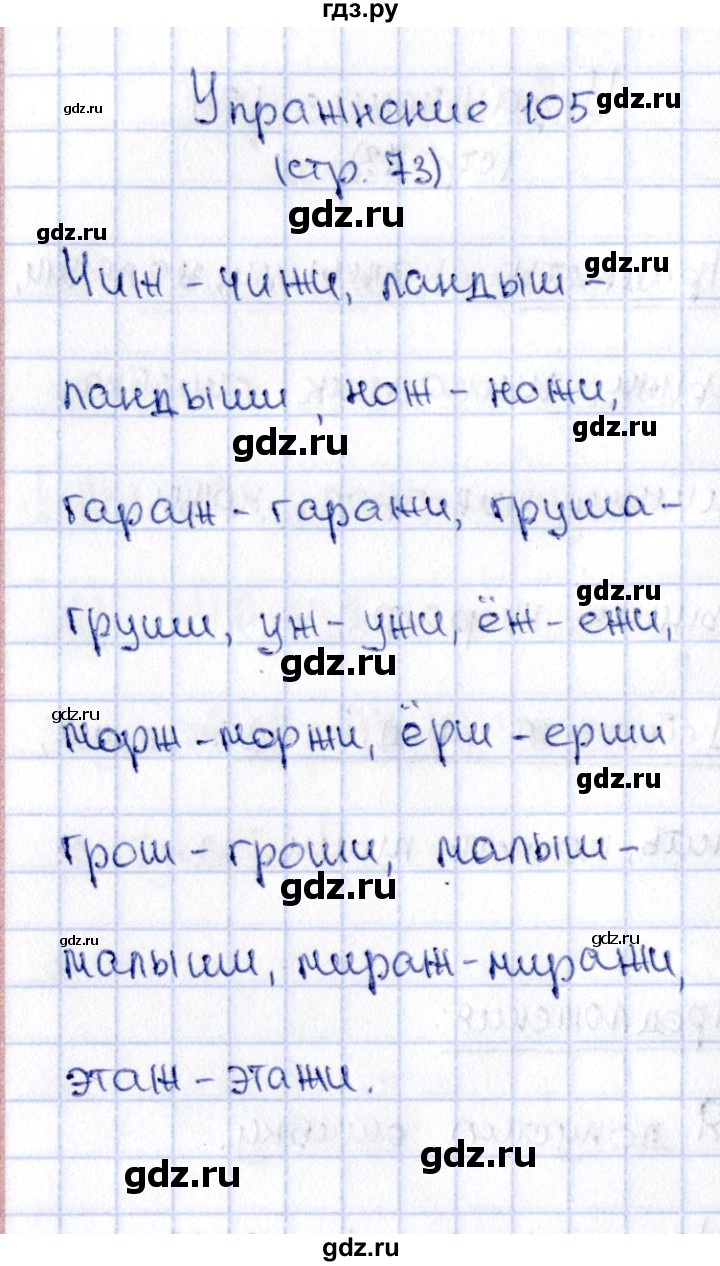 гдз.ру
gdz.ru
Упражнение 105
gdz.ru
(стр. 73)
gdz.ru
gdz.ru
gdz.ru
Чиж - чижи, ландыш -
ландыши, нож - ножи,
gdz.ru
gdz.ru
гараж - гаражи, груша -
gdz.ru
груши, уж - ужи, ёж - ежи,
gdz.ru
gdz.ru
морж - моржи, ёрш - ерши
gdz.ru
грош - гроши, малыш -
gdz.ru
gdz.ru
gdz.ru
малыши, мираж - миражи,
этаж - этажи.
gdz.ru
gdz.ru
gdz.ru